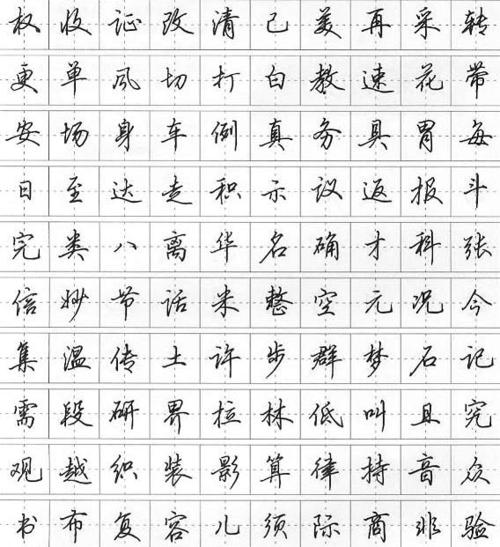 权收证改清己美再采转
更单风切打白教速花带
安场身车例真务具胃每
日至达走积示议返报斗
完类八离华名确才科张
信妙节话米整空元况今
集温传土许步群梦石记
需段研界拉林低叫且究
观越织装影算律持音众
书布复容儿须际商非验